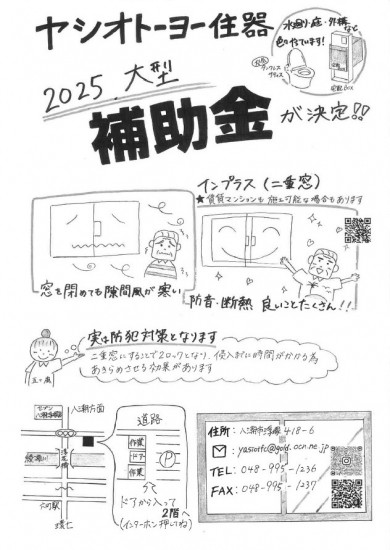 ヤシオトーヨー住器
水廻り・庭・外構など
色々やっています!
タンクレス
宅配BOX
2025.大型
補助金が決定!!
インプラス(二重窓)
★賃貸マンションも施工可能な場合もあります
窓を閉めても隙間風が寒い
防音・断熱 良いことたくさん!!
実は防犯対策となります
二重窓にすることで2ロックとなり、侵入までに時間がかかる為
あきらめさせる効果があります
八潮方面
道路
作業
ドア
作業
P
ドアから入って
2階へ
(インターホン押してね)
住所:八潮市浮塚418-6
:yasiottc@gold.ocn.ne.jp
TEL:048-995-1236
FAX:048-995-1237